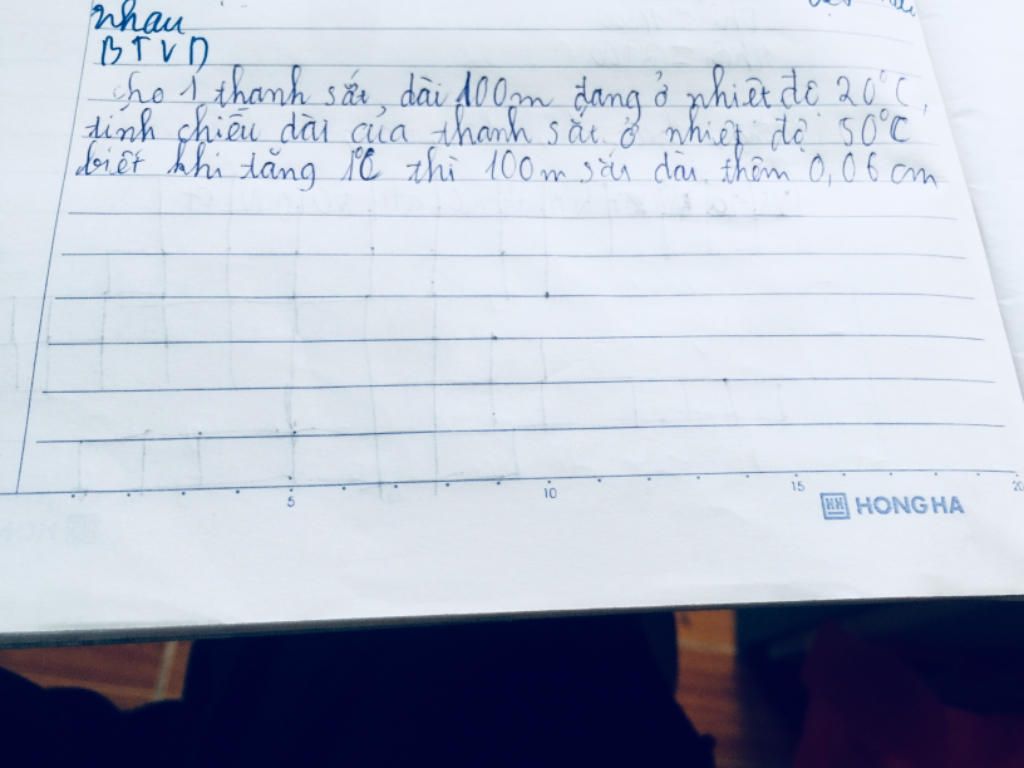 nhau
BTVD
cho 1 thanh sắt dài 100m đang ở nhiệt độ 20°C,
tính chiều dài của thanh sắt ở nhiệt độ 50°C
biết khi tăng 1°C thì 100m sắt dài thêm 0,06 cm
5 10 15 20
HH HONG HA